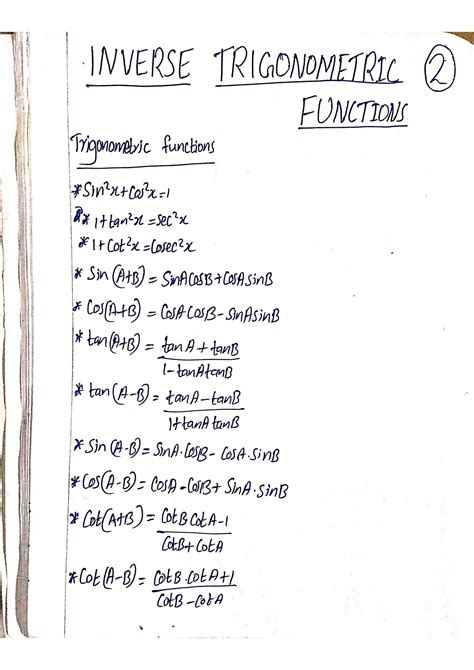 INVERSE TRIGONOMETRIC 2
FUNCTIONS
Trigonometric functions
* Sin²x+Cos²x=1
* 1+tan²x=sec²x
* 1+Cot²x=Cosec²x
* Sin(A+B) = SinACosB+CosASinB
* Cos(A+B) = CosACosB-SinASinB
* tan(A+B) = tanA+tanB
1-tanAtanB
* tan(A-B) = tanA-tanB
1+tanAtanB
* Sin(A-B) = SinA.CosB-CosA.SinB
* Cos(A-B) = CosA-CosB+SinA.SinB
* Cot(A+B) = CotBCotA-1
CotB+CotA
* Cot(A-B) = CotB.CotA+1
CotB-CotA